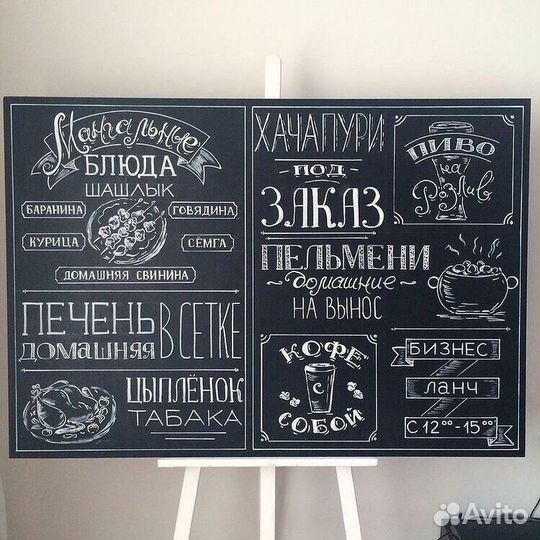 Мангальные
БЛЮДА
ШАШЛЫК
БАРАНИНА
ГОВЯДИНА
КУРИЦА
СЁМГА
ДОМАШНЯЯ СВИНИНА
ПЕЧЕНЬ
ДОМАШНЯЯ
В СЕТКЕ
ЦЫПЛЁНОК
ТАБАКА
ХАЧАПУРИ
ПОД
ЗАКАЗ
ПИВО
на
Розлив
ПЕЛЬМЕНИ
домашние
НА ВЫНОС
КОФЕ
С
СОБОЙ
БИЗНЕС
ЛАНЧ
С 12⁰⁰-15⁰⁰
Avito